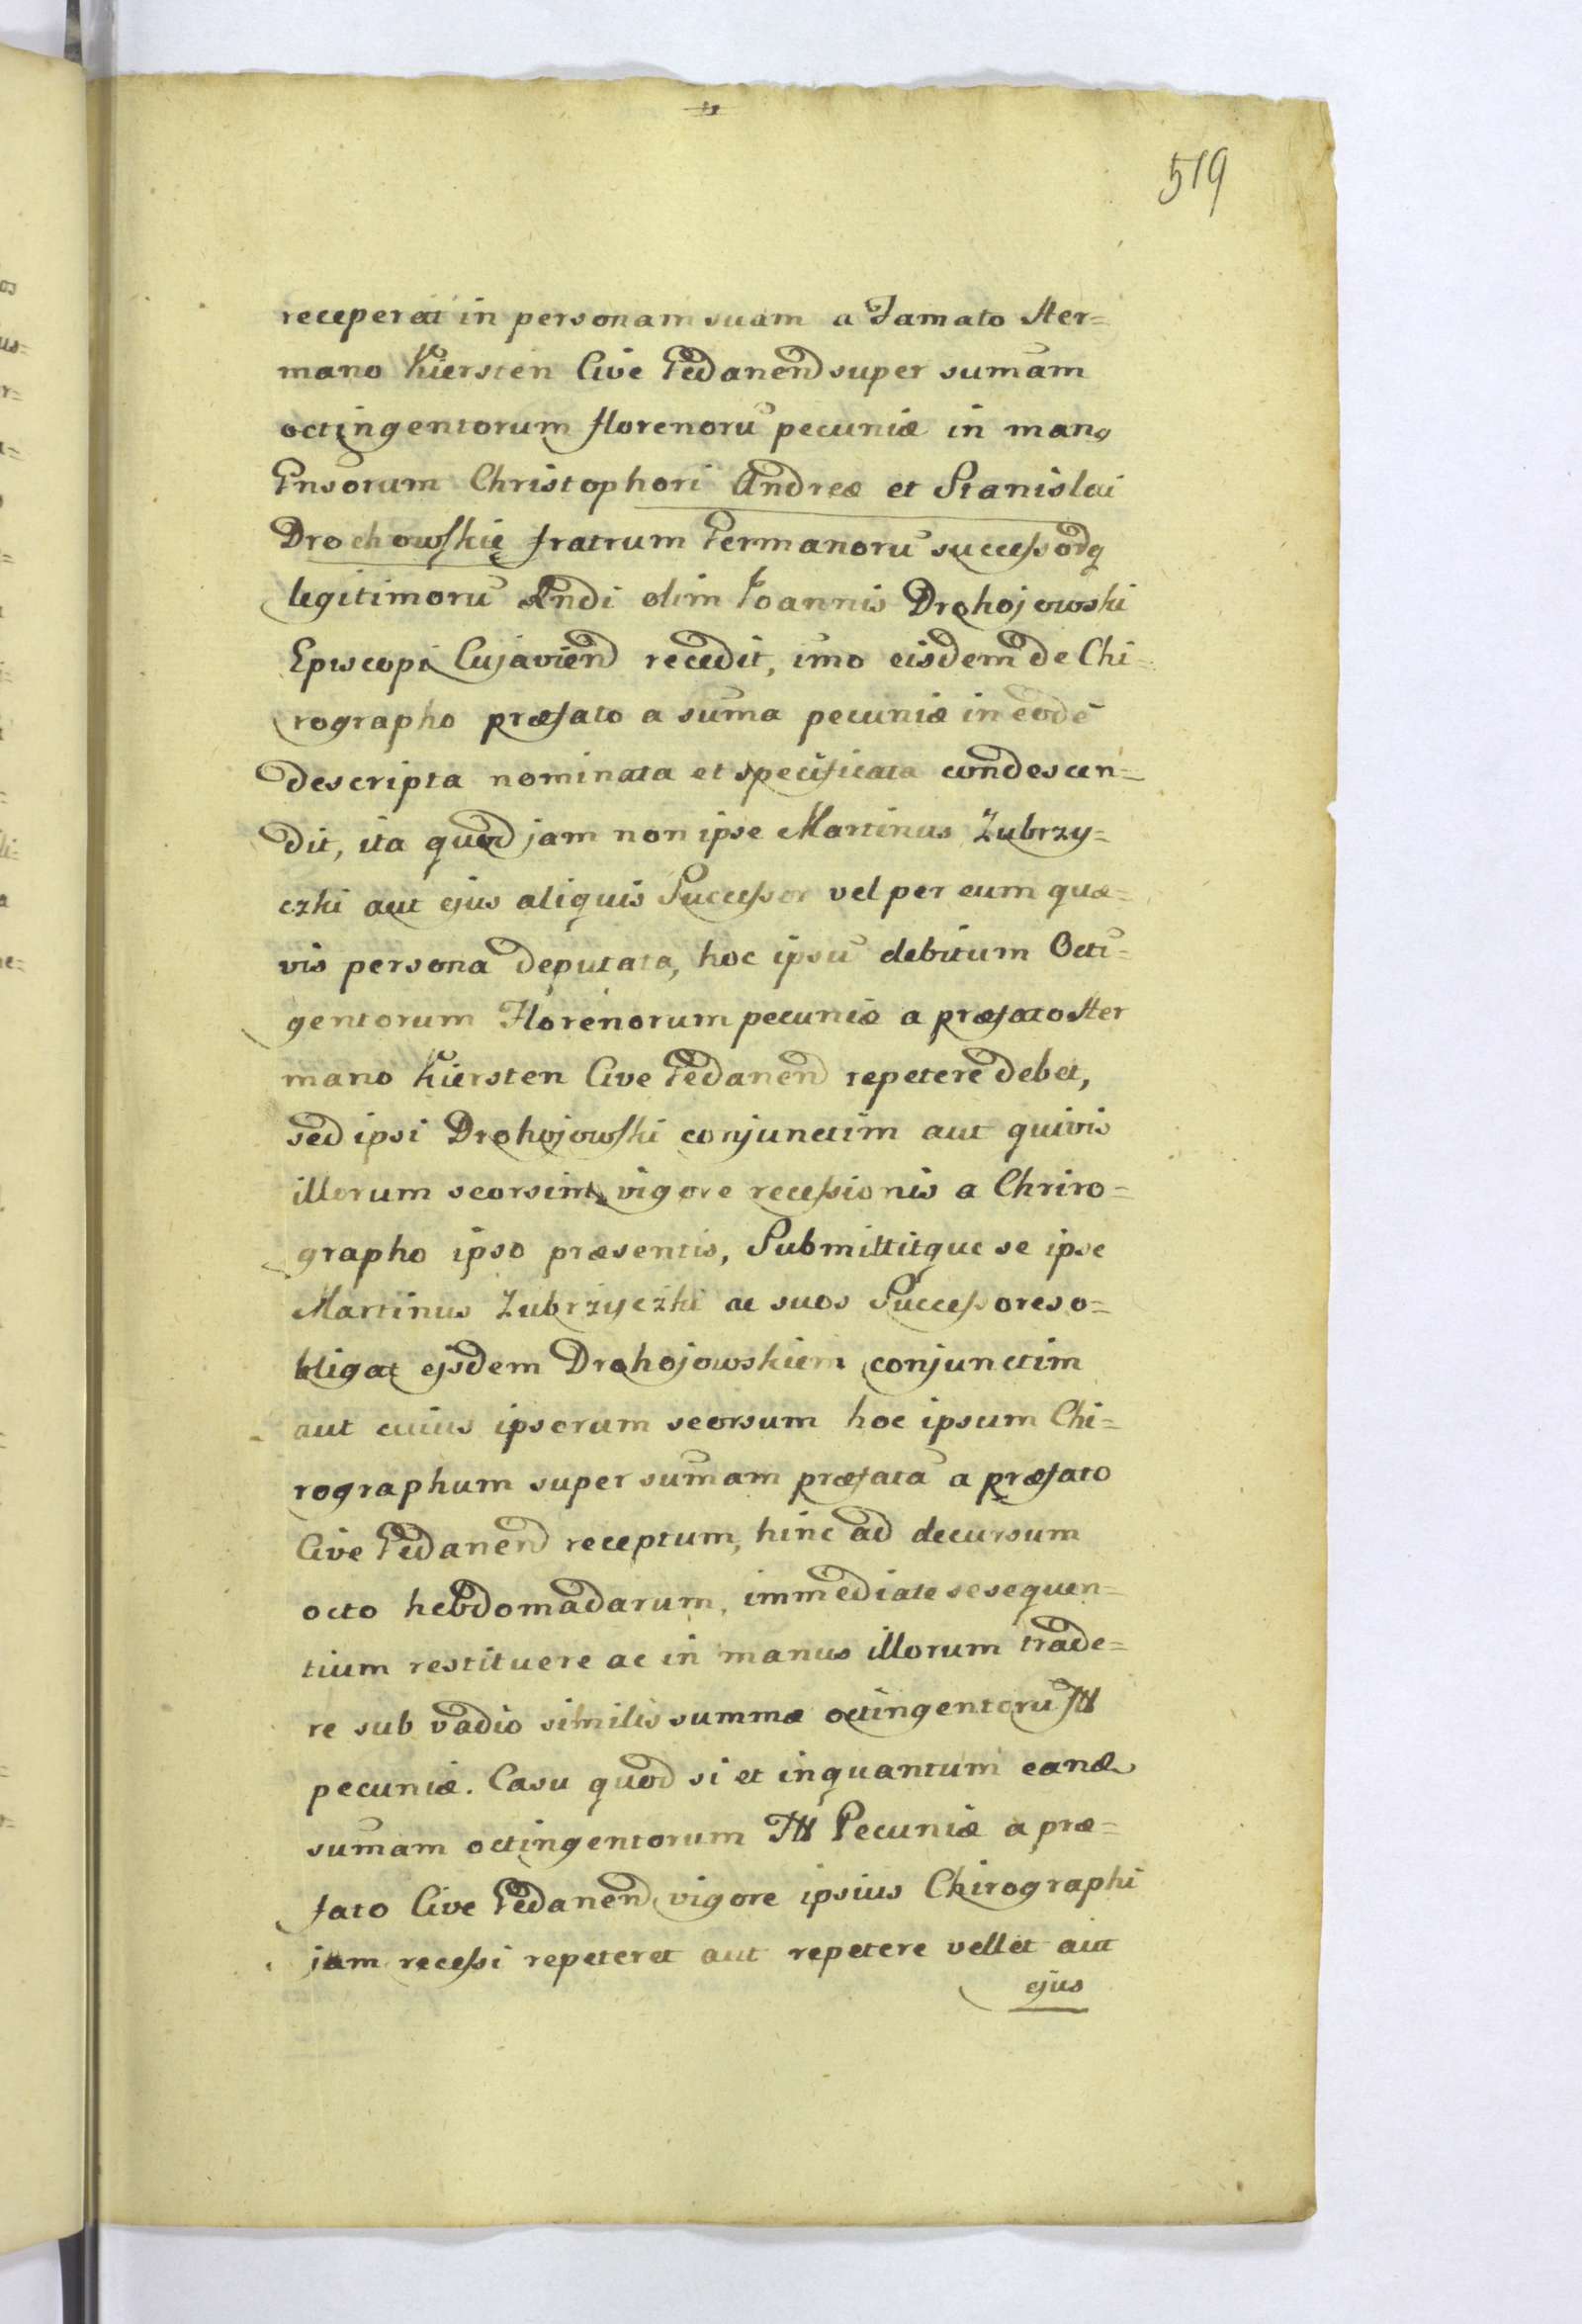 519
receperat in personam suam a Famato Her=
mano Kiersten Cive Gedanen super sumam̄
octingentorum florenorū pecuniæ in manq
Gnsorum Christophori Andreæ et Stanislai
Drochowskię fratrum Germanorū successorq
legitimorū Rndi olim Joannis Drohojowski
Episcopi Cujavien recedit, imo eisdem de Chi=
rographo præfato a suma pecuniæ in eodē
descripta nominata et specificata condescen=
dit, ita quod jam non ipse Martinus Zubrzy=
czki aut ejus aliquis Successor vel per eum quæ=
vis persona deputata, hoc ipsū debitum Octi=
gentorum Florenorum pecuniæ a præfato Her
mano Kiersten Cive Gedanen repetere debet,
sed ipsi Drohojowski conjunctim aut quivis
illorum seorsim vigore recessionis a Chriro=
grapho ipso præsentis, Submittitque se ipse
Martinus Zubrzyczki ac suos Successores o=
bligat ejsdem Drohojowskiem conjunctim
aut cuius ipsorum seorsum hoc ipsum Chi=
rographum super sumam præfatā a præfato
Cive Gedanen receptum, hinc ad decursum
octo hebdomadarum, immediate sesequen=
tium restituere ac in manus illorum trade=
re sub vadio similis summæ octingentorū Fl
pecuniæ. Casu quod si et inquantum eand
sumam octingentorum Fl Pecuniæ a præ=
fato Cive Gedanen vigore ipsius Chirographi
jam recessi repeteret aut repetere vellet aut
ejus